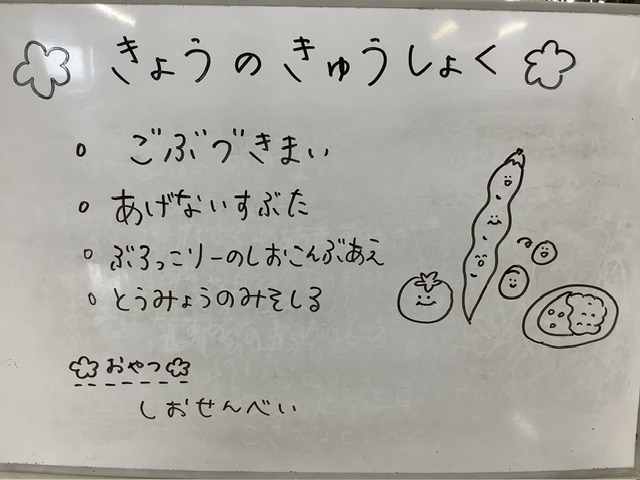 きょうのきゅうしょく
ごぶづきまい
あげないすぶた
ぶろっこりーのしおこんぶあえ
とうみょうのみそしる
おやつ
しおせんべい